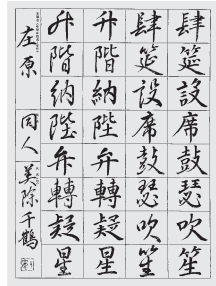 肆筵設席鼓瑟吹笙
肆筵設席鼓瑟吹笙
升階納陛弁轉疑星
升階納陛弁轉疑星
左原 同人 美除千鶴